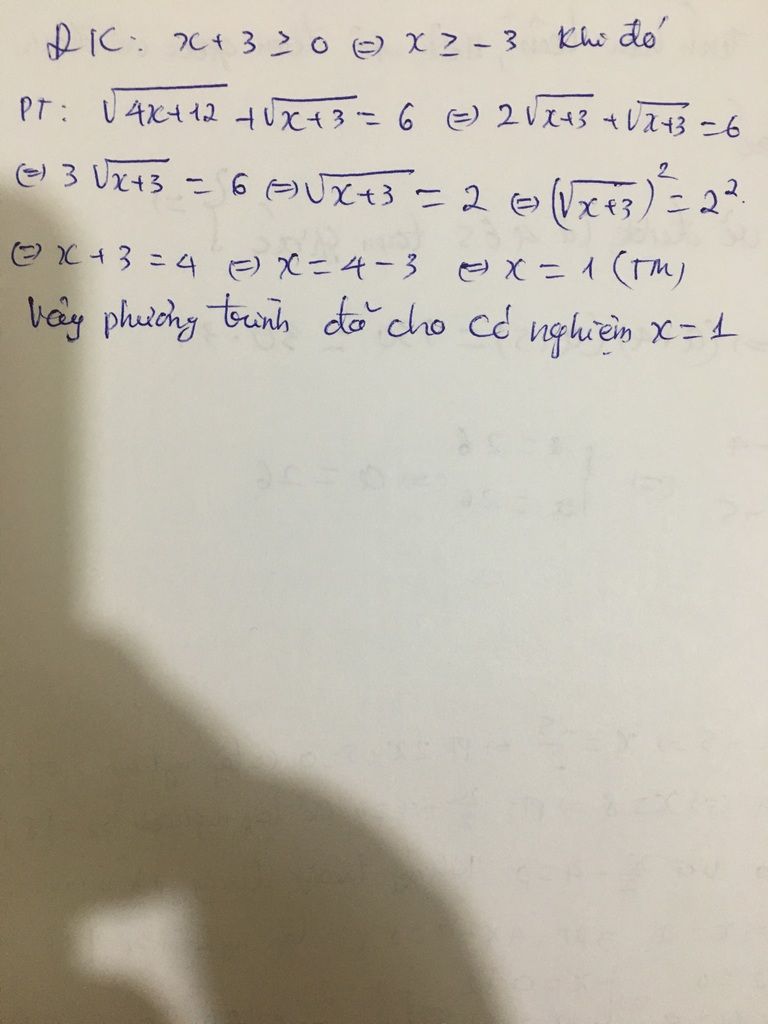 ĐK: x + 3 ≥ 0 ⇔ x ≥ -3 khi đó
PT: √(4x+12) + √(x+3) = 6 ⇔ 2√(x+3) + √(x+3) = 6
⇔ 3√(x+3) = 6 ⇔ √(x+3) = 2 ⇔ (√(x+3))² = 2².
⇔ x + 3 = 4 ⇔ x = 4 - 3 ⇔ x = 1 (TM)
Vậy phương trình đã cho có nghiệm x = 1